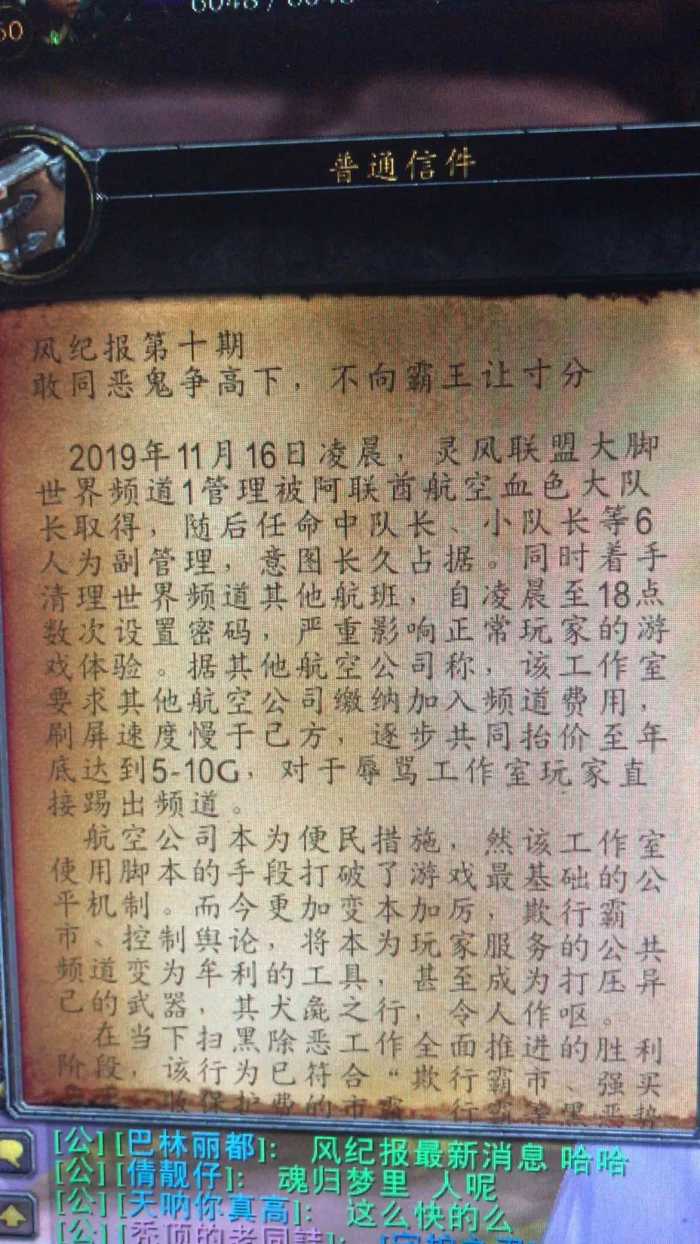 60
普通信件
风纪报第十期
敢同恶鬼争高下，不向霸王让寸分
2019年11月16日凌晨，灵风联盟大脚
世界频道1管理被阿联酋航空血色大队
长取得，随后任命中队长、小队长等6
人为副管理，意图长久占据。同时着手
清理世界频道其他航班，自凌晨至18点
数次设置密码，严重影响正常玩家的游
戏体验。据其他航空公司称，该工作室
要求其他航空公司缴纳加入频道费用，
刷屏速度慢于己方，逐步共同抬价至年
底达到5-10G，对于辱骂工作室玩家直
接踢出频道。
航空公司本为便民措施，然该工作室
使用脚本的手段打破了游戏最基础的公
平机制。而今更加变本加厉，欺行霸
市、控制舆论，将本为玩家服务的公共
频道变为牟利的工具，甚至成为打压异
己的武器，其犬彘之行，令人作呕。
在当下扫黑除恶工作全面推进的胜利
阶段，该行为已符合“欺行霸市、强买
收保护费的市霸、行霸
[公][巴林丽都]： 风纪报最新消息 哈哈
[公][倩靓仔]： 魂归梦里 人呢
[公][天呐你真高]： 这么快的么
[公][秃顶的老同